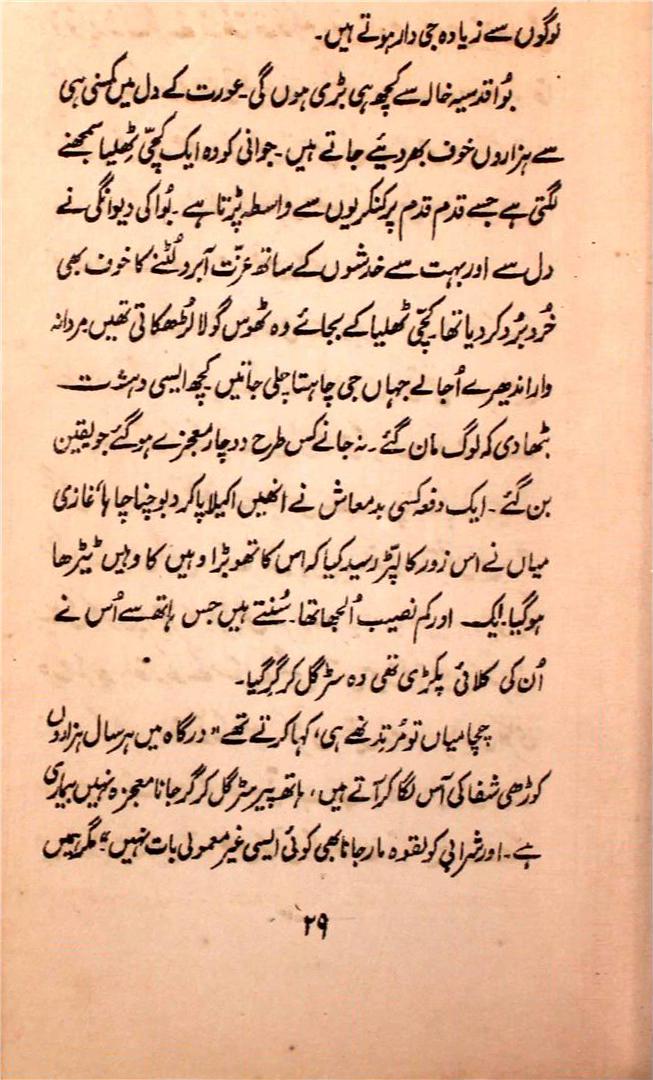 لوگوں سے زیادہ جی دار ہوتے ہیں۔
بُوا قدسیہ خالہ سے کچھ ہی بڑی ہوں گی۔ عورت کے دل میں کمسنی ہی
سے ہزاروں خوف بھر دیئے جاتے ہیں۔ جوانی کو وہ ایک کچّی ٹھلیا سمجھنے
لگتی ہے جسے قدم قدم پر کنکریوں سے واسطہ پڑتا ہے۔ بُوا کی دیوانگی نے
دل سے اور بہت سے خدشوں کے ساتھ عزّت آبرو لُٹنے کا خوف بھی
خُرد بُرد کر دیا تھا کچّی ٹھلیا کے بجائے وہ ٹھوس گولا لڑھکاتی تھیں مردانہ
وار اندھیرے اُجالے جہاں جی چاہتا چلی جاتیں کچھ ایسی دہشت
بٹھا دی کہ لوگ مان گئے۔ نہ جانے کس طرح دو چار معجزے ہو گئے جو یقین
بن گئے۔ ایک دفعہ کسی بدمعاش نے انھیں اکیلا پا کر دبوچنا چاہا، غازی
میاں نے اس زور کا لپّڑ رسید کیا کہ اس کا تھوبڑا وہیں کا وہیں ٹیڑھا
ہو گیا۔ ایک اور کم نصیب اُلجھا تھا۔ سُنتے ہیں جس ہاتھ سے اُس نے
اُن کی کلائی پکڑی تھی وہ سڑ گل کر گر گیا۔
چچا میاں تو مُرتد تھے ہی، کہا کرتے تھے "درگاہ میں ہر سال ہزاروں
کوڑھی شفا کی آس لگا کر آتے ہیں، ہاتھ پیر سڑ گل کر گر جانا معجزہ نہیں بیماری
ہے۔ اور شرابی کو لقوہ مار جانا بھی کوئی ایسی غیر معمولی بات نہیں"۔ مگر ہمیں
۲۹